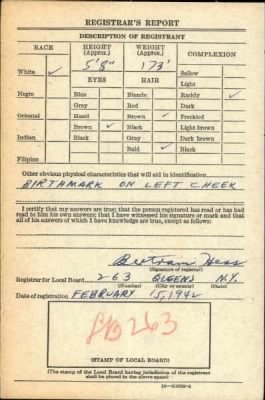 REGISTRAR'S REPORT
DESCRIPTION OF REGISTRANT
RACE
HEIGHT (Approx.)
WEIGHT (Approx.)
COMPLEXION
White ✓
5'8"
173'
Sallow
Light
EYES
HAIR
Ruddy ✓
Negro
Blue
Blonde
Dark
Gray
Red
Freckled
Oriental
Hazel
Brown ✓
Light brown
Brown ✓
Black
Dark brown
Indian
Black
Gray
Black
Bald ✓
Filipino
Other obvious physical characteristics that will aid in identification
BIRTHMARK ON LEFT CHEEK
I certify that my answers are true; that the person registered has read or has had
read to him his own answers; that I have witnessed his signature or mark and that
all of his answers of which I have knowledge are true, except as follows:
Bertram Hess
(Signature of registrar)
Registrar for Local Board 263 QUEENS N.Y.
(Number) (City or county) (State)
Date of registration FEBRUARY 15, 1942
LB 263
(STAMP OF LOCAL BOARD)
(The stamp of the Local Board having jurisdiction of the registrant
shall be placed in the above space)